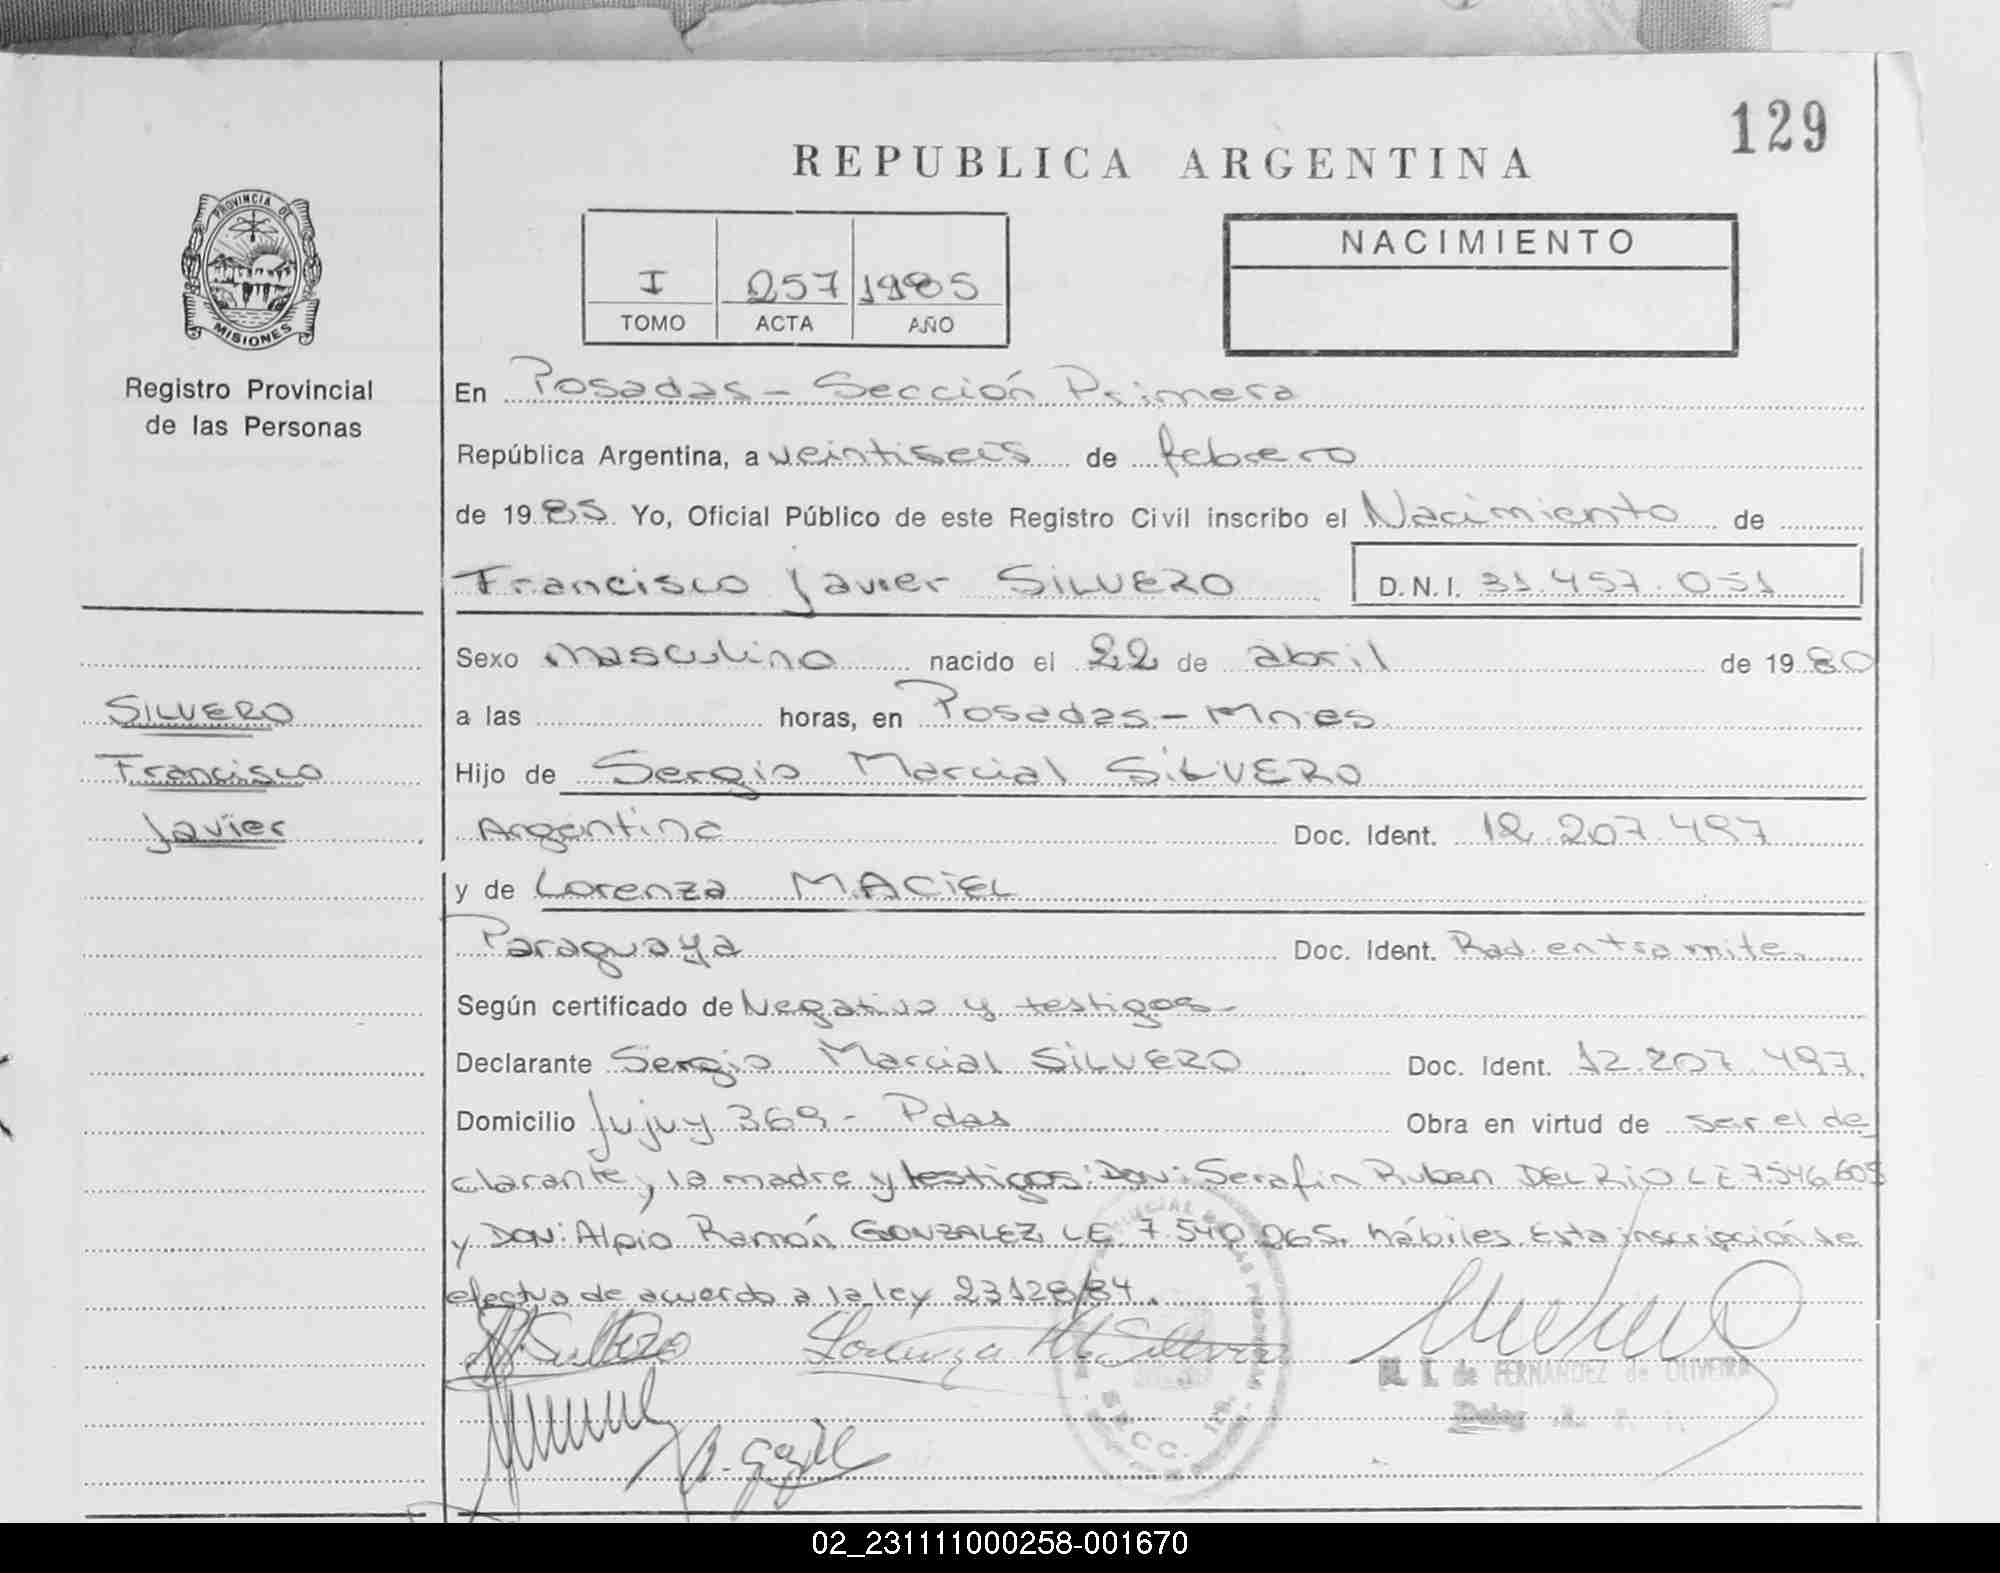 129
REPUBLICA ARGENTINA
PROVINCIA DE
MISIONES
Registro Provincial
de las Personas
I 257 1985
TOMO ACTA AÑO
NACIMIENTO
En Posadas - Sección Primera
República Argentina, a veintiseis de febrero
de 1985 Yo, Oficial Público de este Registro Civil inscribo el Nacimiento de
Francisco Javier SILVERO D.N.I. 31.457.051
Sexo masculino nacido el 22 de abril de 1980
SILVERO
Francisco
Javier
a las horas, en Posadas - Mnes
Hijo de Sergio Marcial SILVERO
Argentina Doc. Ident. 12.207.497
y de Lorenza MACIEL
Paraguaya Doc. Ident. Rad. en tramite.
Según certificado de Negativo y testigos -
Declarante Sergio Marcial SILVERO Doc. Ident. 12.207.497.
Domicilio Jujuy 369 - Pdas Obra en virtud de ser el de
clarante, la madre y testigos: Don: Serafin Ruben DEL RIO LE 7.546.605
y DON: Alpio Ramón GONZALEZ LE 7.540.065. hábiles. Esta inscripción se
efectua de acuerdo a la ley 23128/84.
SECC. 1ra.
M. I. de FERNANDEZ de OLIVEIRA
Deleg.
02_231111000258-001670